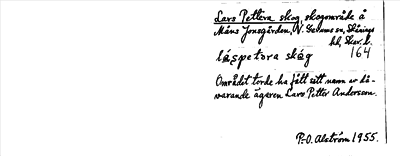 Lars Petters skog, skogsområde å
Måns Jonsgården, V. Skånings
hd, Skar. l.
164
lá̱spetora skóg
Området torde ha fått sitt namn av då-
varande ägaren Lars Petter Andersson.
P.-O. Alström 1955.